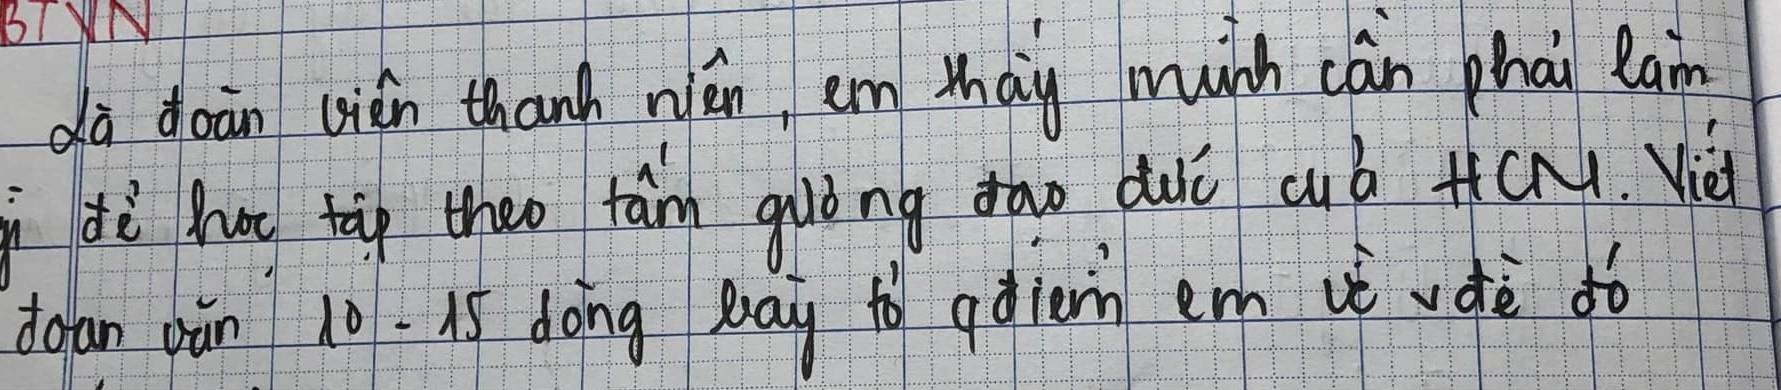 BTVN
Là đoàn viên thanh niên, em thấy mình cần phải làm
gì để học tập theo tấm gương đạo đức của HCM. Viết
đoạn văn 10 - 15 dòng bày tỏ qđiểm em về vđề đó